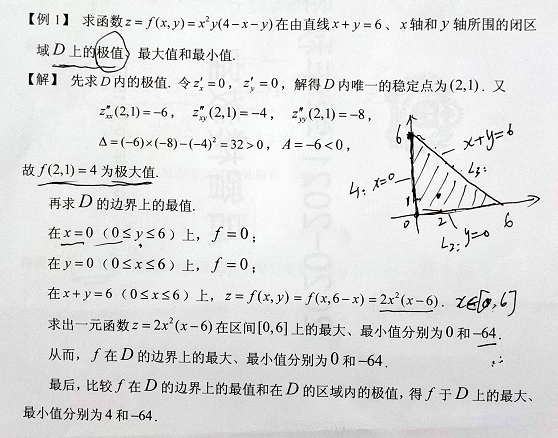 【例1】 求函数z=f(x,y)=x²y(4-x-y)在由直线x+y=6、x轴和y轴所围的闭区
域D上的极值, 最大值和最小值.
【解】 先求D内的极值. 令z'ₓ=0, z'ᵧ=0, 解得D内唯一的稳定点为(2,1). 又
z''ₓₓ(2,1)=-6, z''ₓᵧ(2,1)=-4, z''ᵧᵧ(2,1)=-8,
Δ=(-6)×(-8)-(-4)²=32>0, A=-6<0,
故f(2,1)=4为极大值.
再求D的边界上的最值.
在x=0 (0≤y≤6)上, f=0;
在y=0 (0≤x≤6)上, f=0;
在x+y=6 (0≤x≤6)上, z=f(x,y)=f(x,6-x)=2x²(x-6). x∈[0,6]
求出一元函数z=2x²(x-6)在区间[0,6]上的最大、最小值分别为0和-64.
从而, f在D的边界上的最大、最小值分别为0和-64.
最后, 比较f在D的边界上的最值和在D的区域内的极值, 得f于D上的最大、
最小值分别为4和-64.
6
x+y=6
L₁: x=0
L₃:
1
0
2
6
L₂: y=0